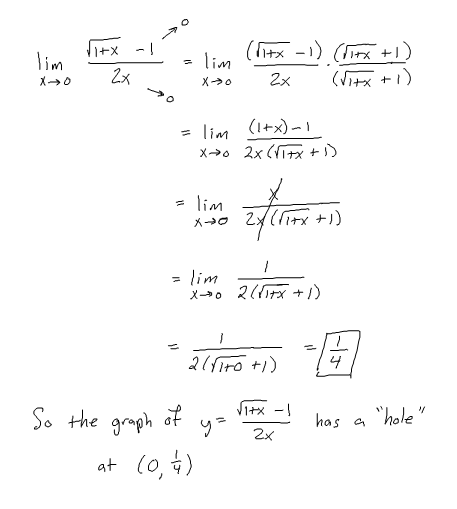 lim x→0 (√(1+x) - 1)/(2x) →0 →0 = lim x→0 ((√(1+x) - 1)/(2x)) · ((√(1+x) + 1)/(√(1+x) + 1))
= lim x→0 ((1+x) - 1)/(2x(√(1+x) + 1))
= lim x→0 x/(2x(√(1+x) + 1))
= lim x→0 1/(2(√(1+x) + 1))
= 1/(2(√(1+0) + 1)) = 1/4
So the graph of y = (√(1+x) - 1)/(2x) has a "hole"
at (0, 1/4)